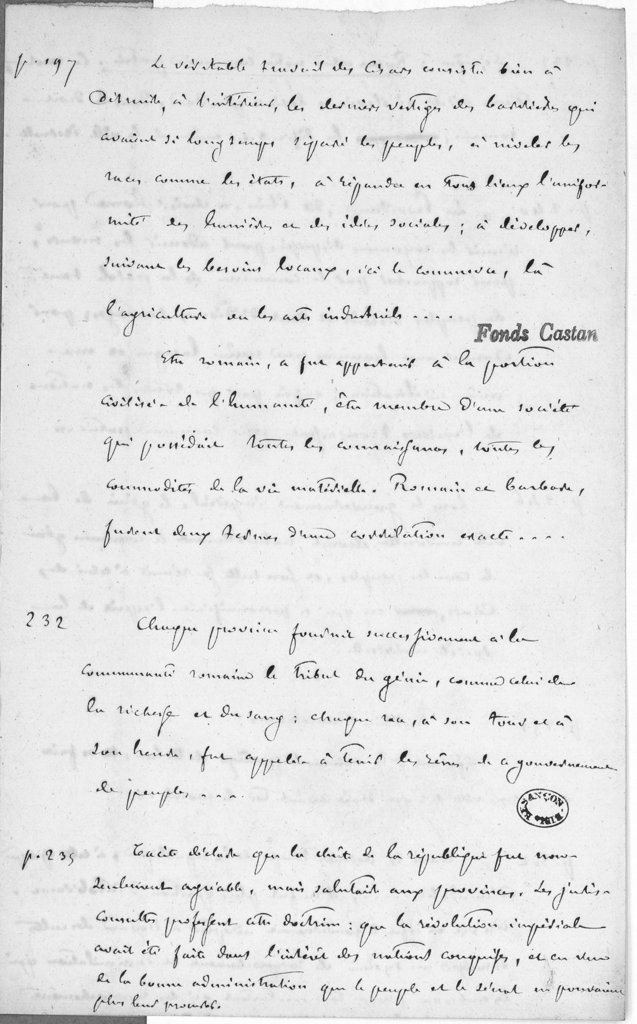 p. 197 Le véritable travail des Césars consista bien à
détruire, à l'intérieur, les derniers vestiges des barrières qui
avaient si longtemps séparé les peuples, à niveler les
races comme les états, à répandre en tous lieux l'unifor-
mité des lumières et des idées sociales ; à développer,
suivant les besoins locaux, ici le commerce, là
l'agriculture ou les arts industriels . . . .
Fonds Castan
Etre romain, ce fut appartenir à la portion
civilisée de l'humanité, être membre d'une société
qui possédait toutes les connaissances, toutes les
commodités de la vie matérielle. Romain et barbare,
furent deux termes d'une corrélation exacte . . . .
232 Chaque province fournit successivement à la
communauté romaine le tribut du génie, comme celui de
la richesse et du sang : chaque race, à son tour et à
son heure, fut appelée à tenir les rênes de ce gouvernement
de peuples . . . .
BIBL. BESANÇON
p. 235 Tacite déclare que la chûte de la république fut non-
seulement agréable, mais salutaire aux provinces. Les juris-
consultes professent cette doctrine : que la révolution impériale
avait été faite dans l'intérêt des nations conquises, et en vue
de la bonne administration que le peuple et le sénat ne pouvaient
plus leur procurer.